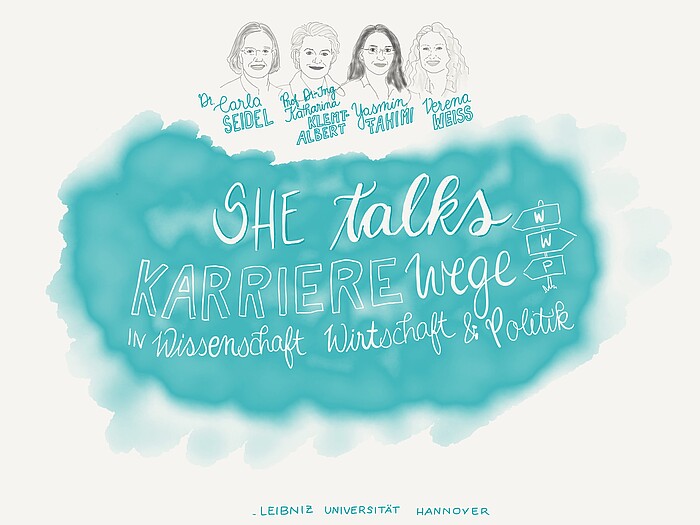 Dr. Carla SEIDEL
Prof. Dr.-Ing. Katharina KLEMT-ALBERT
Yasmin FAHIMI
Verena WEISS
SHE talks
KARRIERE wege
W
W
P
IN Wissenschaft Wirtschaft & Politik
- LEIBNIZ UNIVERSITÄT HANNOVER